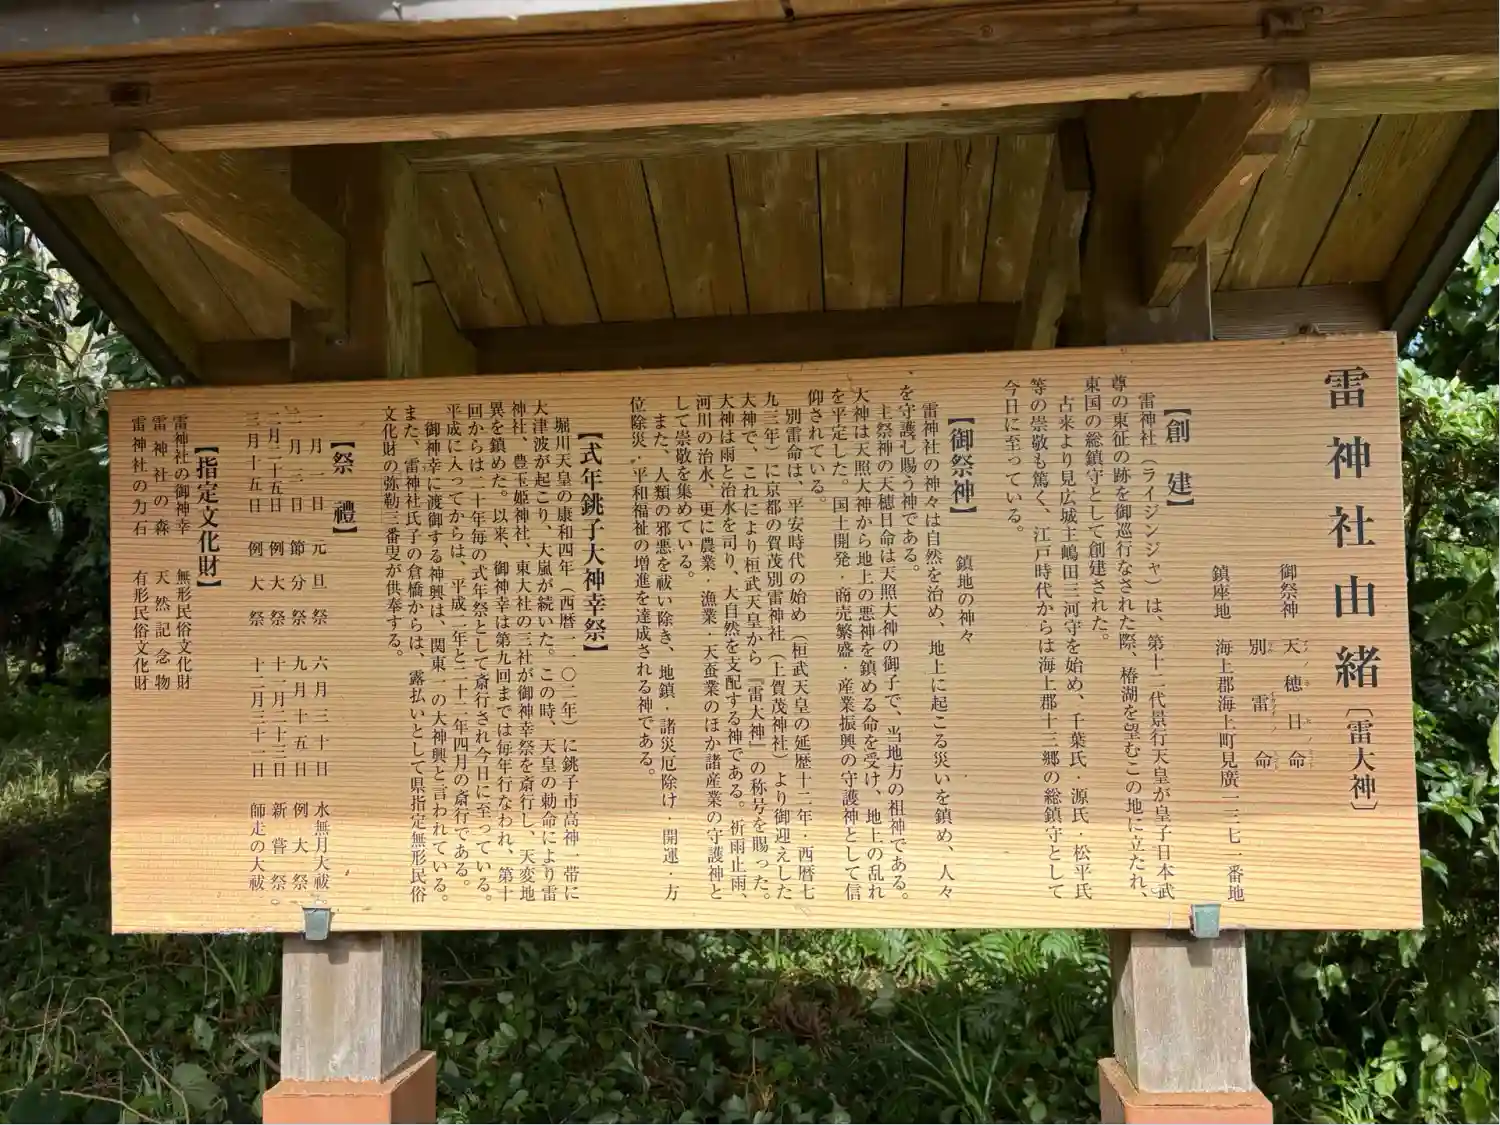 雷神社由緒〔雷大神〕
御祭神　天穂日命
別雷命
鎮座地　海上郡海上町見廣一三七一番地
【創　建】
雷神社（ライジンジャ）は、第十二代景行天皇が皇子日本武
尊の東征の跡を御巡行なされた際、椿湖を望むこの地に立たれ、
東国の総鎮守として創建された。
占来より見広城主嶋田三河守を始め、千葉氏・源氏・松平氏
等の崇敬も篤く、江戸時代からは海上郡十三郷の総鎮守として
今日に至っている。
【御祭神】　鎮地の神々
雷神社の神々は自然を治め、地上に起こる災いを鎮め、人々
を守護し賜う神である。
主祭神の天穂日命は天照大神の御子で、当地方の祖神である。
大神は天照大神から地上の悪神を鎮める命を受け、地上の乱れ
を平定した。国土開発・商売繁盛・産業振興の守護神として信
仰されている。
別雷命は、平安時代の始め（桓武天皇の延歴十二年・西暦七
九三年）に京都の賀茂別雷神社（上賀茂神社）より御迎えした
大神で、これにより桓武天皇から『雷大神』の称号を賜った。
大神は雨と治水を司り、大自然を支配する神である。祈雨止雨、
河川の治水、更に農業・漁業・天蚕業のほか諸産業の守護神と
して崇敬を集めている。
また、人類の邪悪を祓い除き、地鎮・諸災厄除け・開運・方
位除災・平和福祉の増進を達成される神である。
【式年銚子大神幸祭】
堀川天皇の康和四年（西暦一一〇二年）に銚子市高神一帯に
大津波が起こり、大嵐が続いた。この時、天皇の勅命により雷
神社、豊玉姫神社、東大社の三社が御神幸祭を斎行し、天変地
異を鎮めた。以来、御神幸は第九回までは毎年行なわれ、第十
回からは二十年毎の式年祭として斎行され今日に至っている。
平成に入ってからは、平成二年と二十二年四月の斎行である。
御神幸に渡御する神輿は、関東一の大神輿と言われている。
また、雷神社氏子の倉橋からは、露払いとして県指定無形民俗
文化財の弥勒三番叟が供奉する。
【祭　禮】
一月一日　元旦祭　六月三十日　水無月大祓。
二月三日　節分祭　九月十五日　例大祭。
二月二十五日　例大祭　十一月二十三日　新嘗祭。
三月十五日　例大祭　十二月三十一日　師走の大祓。
【指定文化財】
雷神社の御神幸　無形民俗文化財
雷神社の森　天然記念物
雷神社の力石　有形民俗文化財